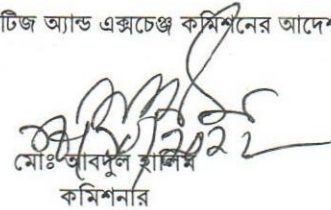 টিজ অ্যান্ড এক্সচেঞ্জ কমিশনের আদে
মোঃ আবদুল হালিম
কমিশনার